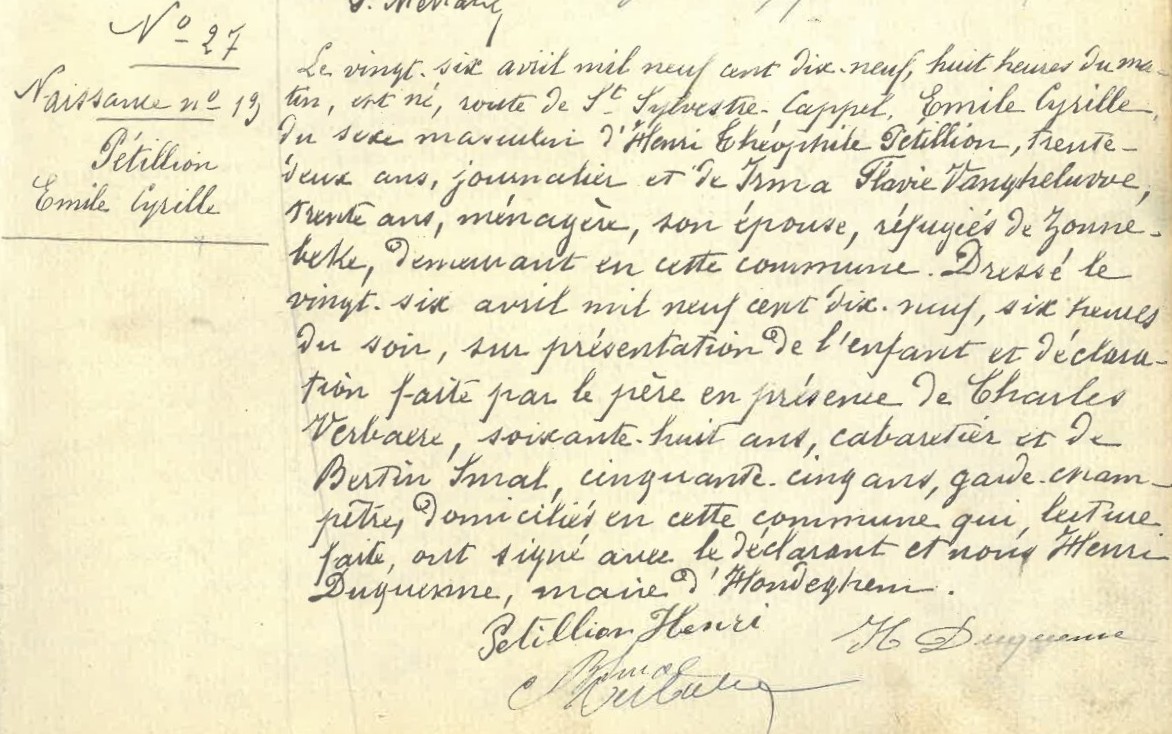 Nº 27
Naissance nº 19
Pétillion
Emile Cyrille
Le vingt-six avril mil neuf cent dix-neuf, huit heures du ma-
tin, est né, route de St Sylvestre-Cappel, Emile Cyrille,
du sexe masculin d'Henri Théophile Pétillion, trente-
deux ans, journalier et de Irma Flavie Vangheluvve,
trente ans, ménagère, son épouse, réfugiés de Zonne-
beke, demeurant en cette commune. Dressé le
vingt-six avril mil neuf cent dix-neuf, six heures
du soir, sur présentation de l'enfant et déclara-
tion faite par le père en présence de Charles
Verbaere, soixante-huit ans, cabaretier et de
Bertin Smal, cinquante-cinq ans, garde-cham-
pêtre, domiciliés en cette commune qui, lecture
faite, ont signé avec le déclarant et nous Henri
Duquenne, maire d'Hondeghem.
Petillion Henri
H Duquenne
B Smal